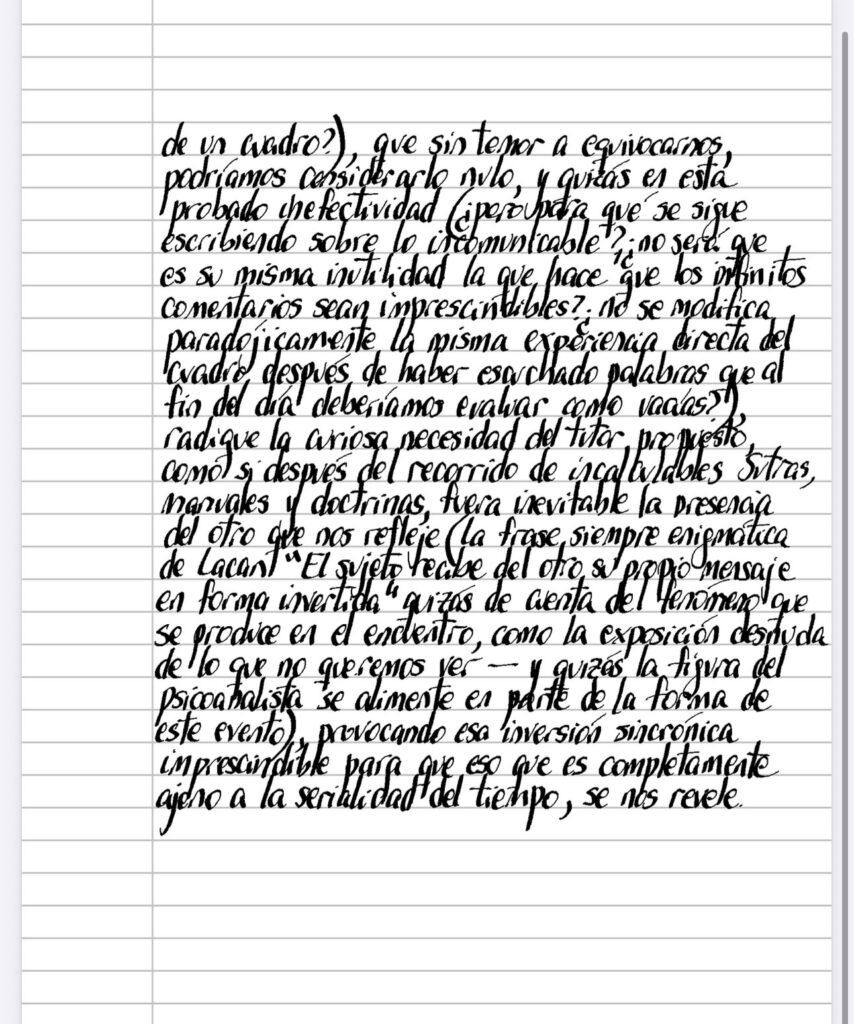 de un cuadro?), que sin temor a equivocarnos,
podríamos considerarlo nulo, y quizás en está
probado inefectividad (¿pero para qué se sigue
escribiendo sobre lo incomunicable?; ¿no será que
es su misma inutilidad la que hace que los infinitos
comentarios sean imprescindibles?; ¿no se modifica
paradójicamente la misma experiencia directa del
cuadro, después de haber escuchado palabras que al
fin del día deberíamos evaluar como vacías?),
radique la curiosa necesidad del tutor propuesto,
como si después del recorrido de incalculables Sutras,
manuales y doctrinas, fuera inevitable la presencia
del otro que nos refleje (la frase siempre enigmática
de Lacan "El sujeto recibe del otro su propio mensaje
en forma invertida" quizás de cuenta del fenómeno que
se produce en el encuentro, como la exposición desnuda
de lo que no queremos ver — y quizás la figura del
psicoanalista se alimente en parte de la forma de
este evento), provocando esa inversión sincrónica
imprescindible para que eso que es completamente
ajeno a la serialidad del tiempo, se nos revele.